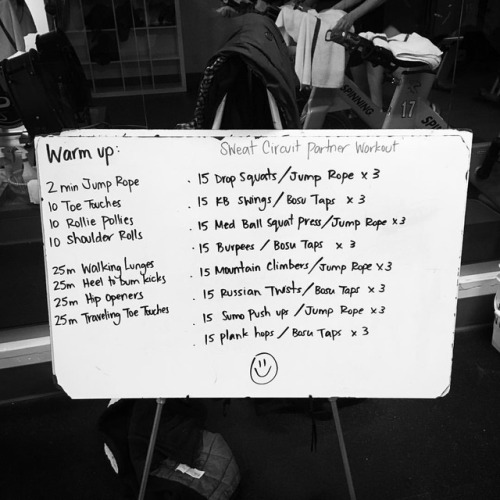 Warm up:
2 min Jump Rope
10 Toe Touches
10 Rollie Pollies
10 Shoulder Rolls
25m Walking Lunges
25m Heel to bum kicks
25m Hip openers
25m Traveling Toe Touches
Sweat Circuit Partner Workout
. 15 Drop Squats/Jump Rope x 3
. 15 KB Swings/Bosu Taps x 3
. 15 Med Ball Squat Press/Jump Rope x3
. 15 Burpees / Bosu Taps x 3
. 15 Mountain Climbers/Jump Rope x3
. 15 Russian Twists/Bosu Taps x 3
. 15 Sumo Push ups /Jump Rope x3
. 15 plank hops / Bosu Taps x 3
SPINNING
17
SPIN